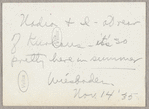 Nadia & I - at rear
of Kurhaus - it's so
pretty here in summer
Wiesbaden
Nov. 14 '35.